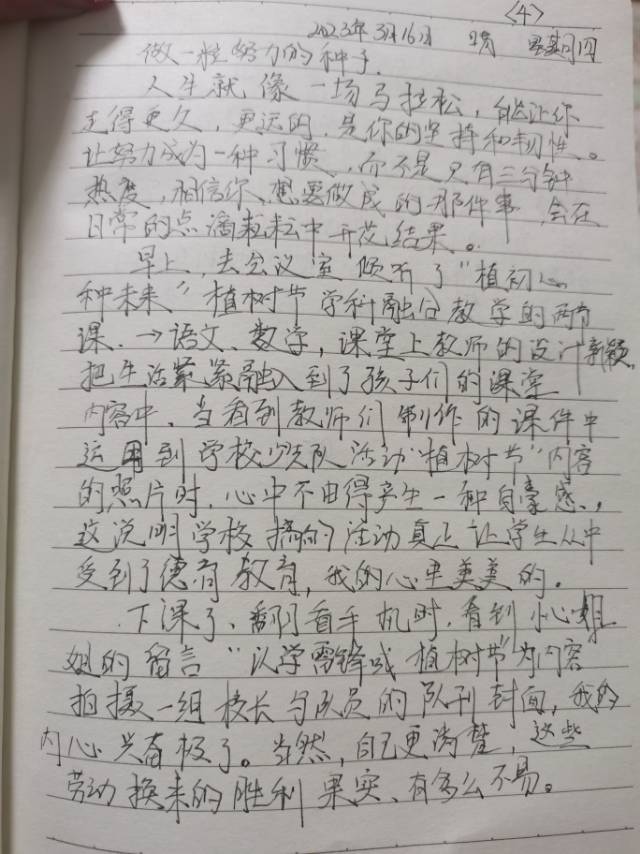 <4>
2023年3月16日 晴 星期四
做一粒努力的种子.
人生就像一场马拉松，能让你
走得更久，更远的，是你的坚持和韧性。
让努力成为一种习惯，而不是只有三分钟
热度，相信你想要做成的那件事，会在
日常的点滴耕耘中开花结果。
早上，去会议室倾听了“植初心
种未来”植树节学科融合教学的两节
课.→语文、数学，课堂上教师的设计新颖，
把生活紧紧融入到了孩子们的课堂
内容中，当看到教师们制作的课件中
运用到学校少先队活动“植树节”内容
的照片时，心中不由得产生一种自豪感，
这说明学校搞的活动真正让学生从中
受到了德育教育，我的心里美美的.
下课了、翻看手机时，看到小姐
姐的留言“以学雷锋或植树节”为内容
拍摄一组校长与队员的队刊封面，我的
内心兴奋极了。当然，自己更清楚，这些
劳动换来的胜利果实、有多么不易。